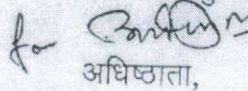 for
अधिष्ठाता,